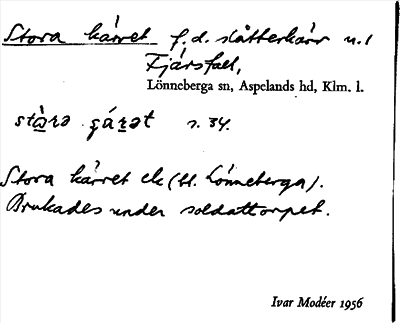 Stora kärret f.d. slåtterkärr u.l
Fjärsfall,
Lönneberga sn, Aspelands hd, Klm. l.
stɷ̀rə ʂáʀət s. 34.
Stora kärret ek (bl. Lönneberga).
Brukades under soldattorpet.
Ivar Modéer 1956